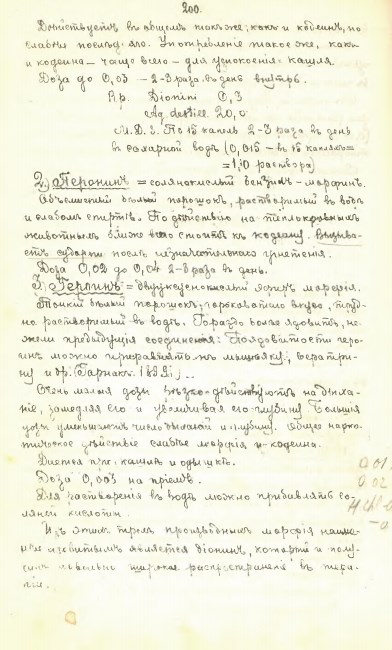 200.
Дѣйствуетъ въ общемъ такъ же, какъ и кодеинъ, но
слабѣе послѣдняго. Употребленіе такое же, какъ
и кодеина — чаще всего — для успокоенія кашля.
Доза до 0,03 — 2-3 раза въ день внутрь.
Rp. Dionini 0,3
Aq. destill 20,0
M.D.S. По 15 капель 2-3 раза въ день
въ сахарной водѣ (0,015 — въ 15 капляхъ=
=1,0 раствора)
2) Перонинъ = солянокислый бензилъ-морфинъ.
Объемистый бѣлый порошокъ, растворимый въ водѣ
и слабомъ спиртѣ. По дѣйствію на теплокровныхъ
животныхъ ближе всего стоитъ къ кодеину. Вызыва-
етъ судороги послѣ незначительнаго угнетенія.
Доза 0,02 до 0,04 2-3 раза въ день.
3) Героинъ = двууксуснокислый эфиръ морфія.
Тонкій бѣлый порошокъ, горьковатаго вкуса, труд-
но растворимый въ водѣ. Гораздо болѣе ядовитъ, не-
жели предыдущія соединенія. По ядовитости геро-
инъ можно приравнять къ мышьяку, вератри-
ну и др.
Очень малыя дозы рѣзко дѣйствуютъ на дыха-
ніе, замедляя его и увеличивая его глубину. Большія
дозы уменьшаютъ число дыханій и глубину. Общее нарко-
тическое дѣйствіе слабѣе морфія и кодеина.
Дается при кашлѣ и одышкѣ.
Доза 0,003 на пріемъ.
0,01
0,02
Для растворенія въ водѣ можно прибавлять со-
ляной кислоты.
Изъ этихъ трехъ производныхъ морфія наиме-
нѣе ядовитымъ является діонинъ, который и полу-
чилъ довольно широкое распространеніе въ тера-
піи.